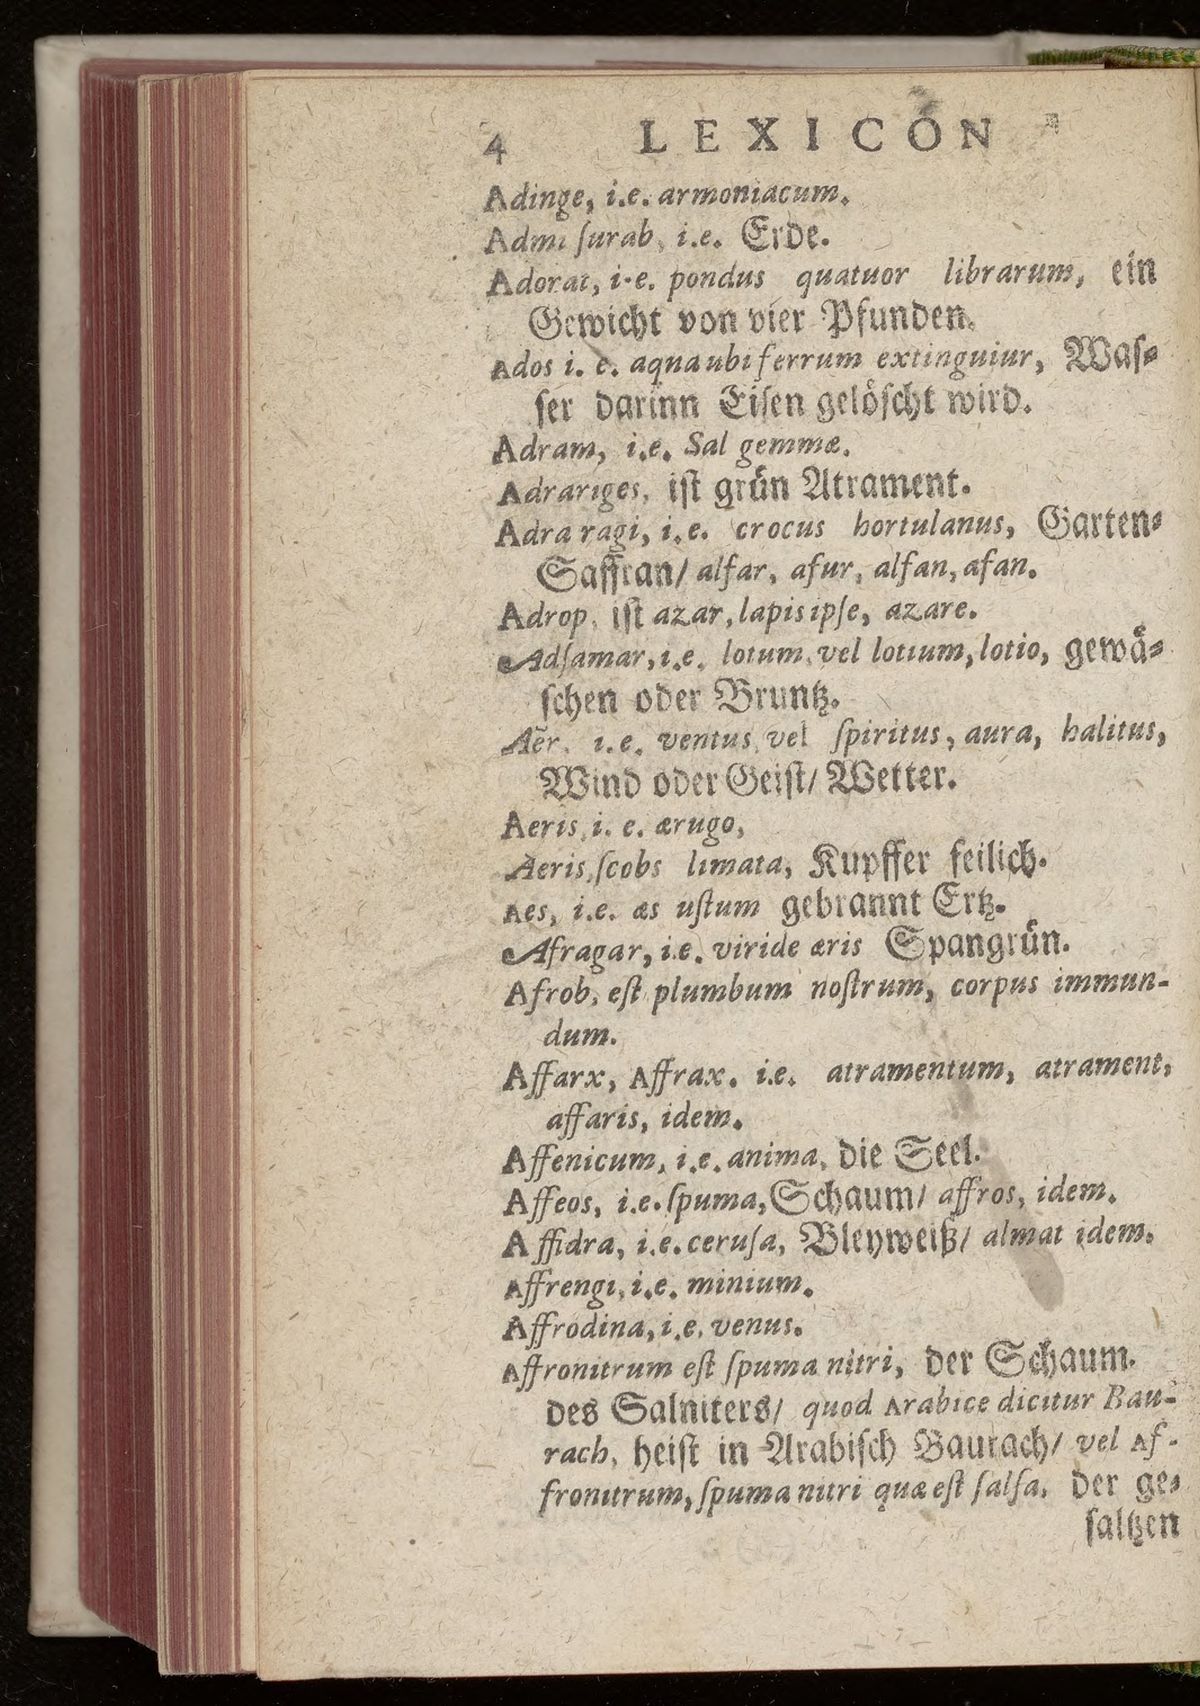 4 LEXICON
Adinge, i.e. armoniacum.
Admi ſurab, i.e. Erde.
Adorat, i.e. pondus quatuor librarum, ein
Gewicht von vier Pfunden.
Ados i. e. aqna ubi ferrum extinguiur, Waſ⸗
ſer darinn Eiſen gelöſcht wird.
Adram, i.e. Sal gemmæ.
Adrariges, iſt grün Atrament.
Adra ragi, i.e. crocus hortulanus, Garten⸗
Saffran/ alfar, afur, alfan, afan.
Adrop, iſt azar, lapis ipſe, azare.
Adſamar, i.e. lotum, vel lotium, lotio, gewä⸗
ſchen oder Bruntz.
Aër, i.e. ventus, vel ſpiritus, aura, halitus,
Wind oder Geiſt/ Wetter.
Aeris, i. e. ærugo,
Aeris, ſcobs limata, Kupffer feilich.
Aes, i.e. æs uſtum gebrannt Ertz.
Afragar, i.e. viride æris Spangrün.
Afrob, eſt plumbum noſtrum, corpus immun-
dum.
Affarx, Affrax. i.e. atramentum, atrament,
affaris, idem.
Affenicum, i.e. anima, die Seel.
Affeos, i.e. ſpuma, Schaum/ affros, idem.
Affidra, i.e. ceruſa, Bleyweiß/ almat idem.
Affrengi, i.e. minium.
Affrodina, i.e. venus.
Affronitrum eſt ſpuma nitri, der Schaum.
des Salniters/ quod Arabice dicitur Bau-
rach, heiſt in Arabiſch Baurach/ vel Af-
fronitrum, ſpuma nitri quæ eſt ſalſa. der ge⸗
ſaltzen